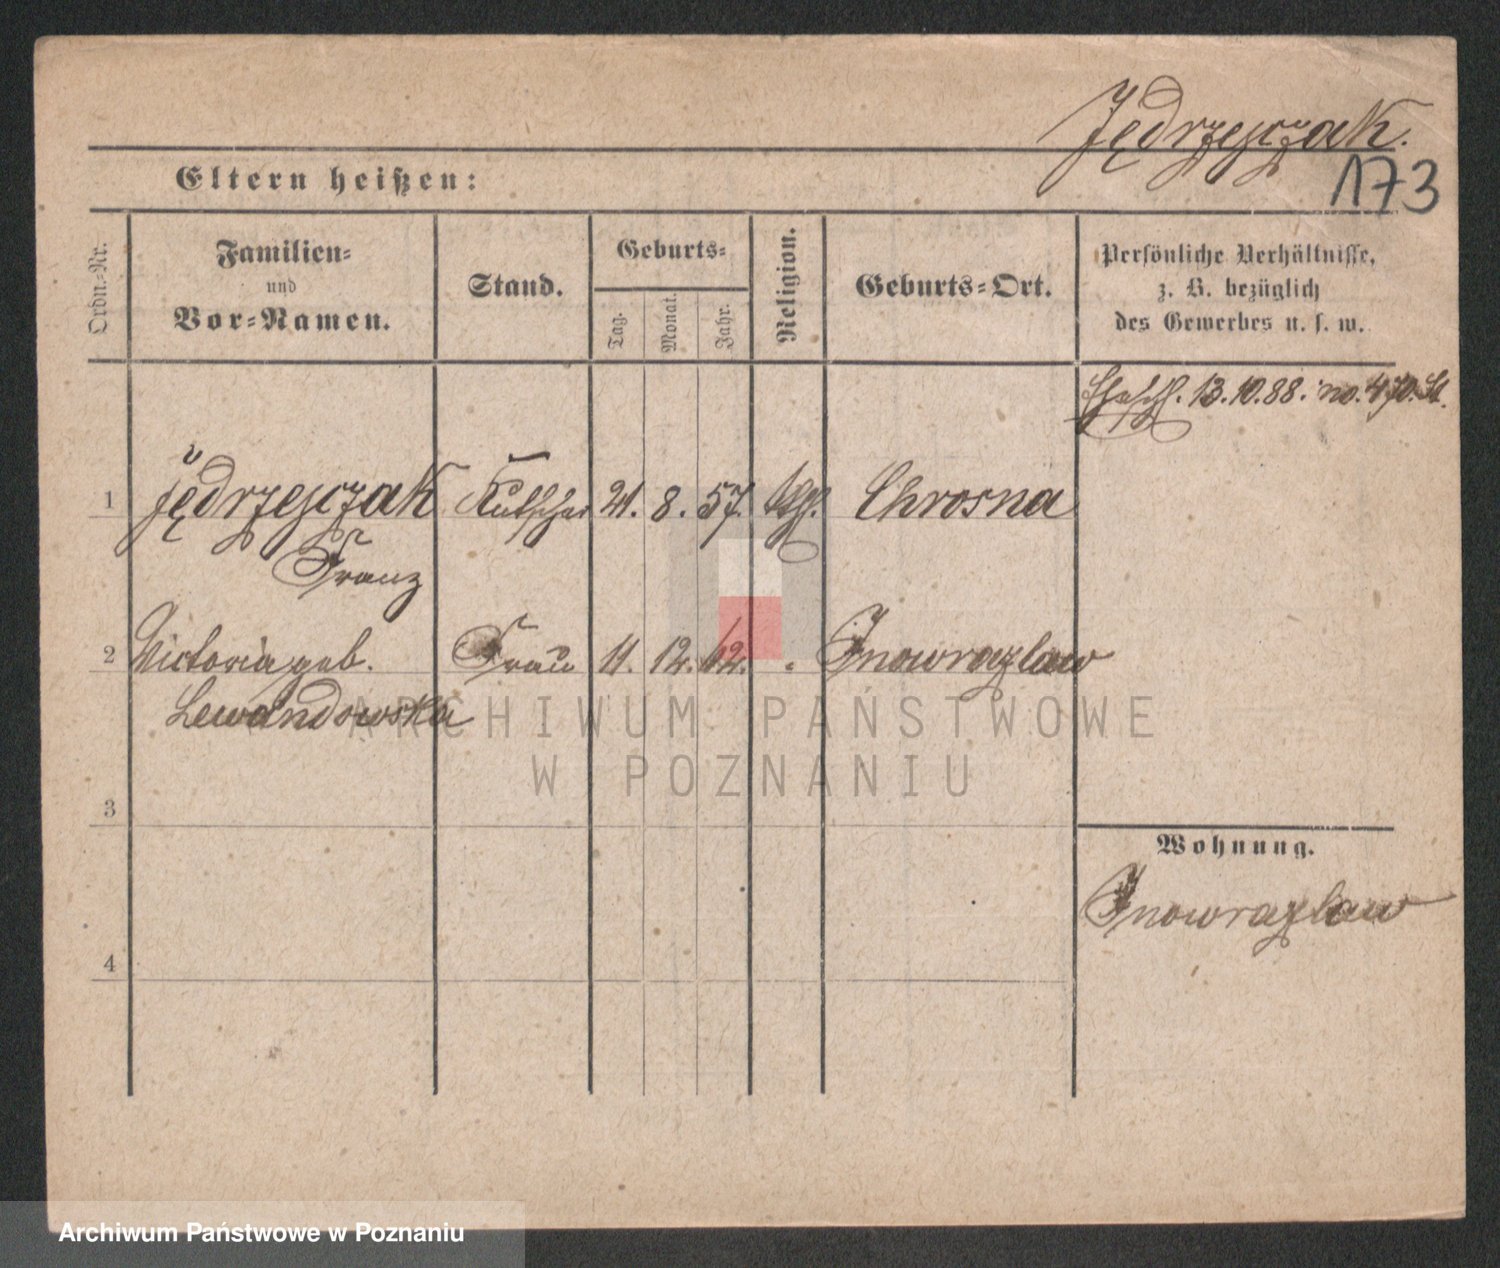 Jędrzejczak.
173
Eltern heißen:
Ordn.-Nr.
Familien-
und
Vor-Namen.
Stand.
Geburts-
Tag.
Monat.
Jahr.
Religion.
Geburts-Ort.
Persönliche Verhältnisse,
z. B. bezüglich
des Gewerbes u. s. w.
13.10.88. no. 470.
1 Jędrzejczak Kutscher 21. 8. 57. kth. Chrosna
Franz
2 Victoria geb. Frau 11. 12. 62. " Inowrazlaw
Lewandowska
3
4
Wohnung.
Inowrazlaw
ARCHIWUM PAŃSTWOWE
W POZNANIU
Archiwum Państwowe w Poznaniu